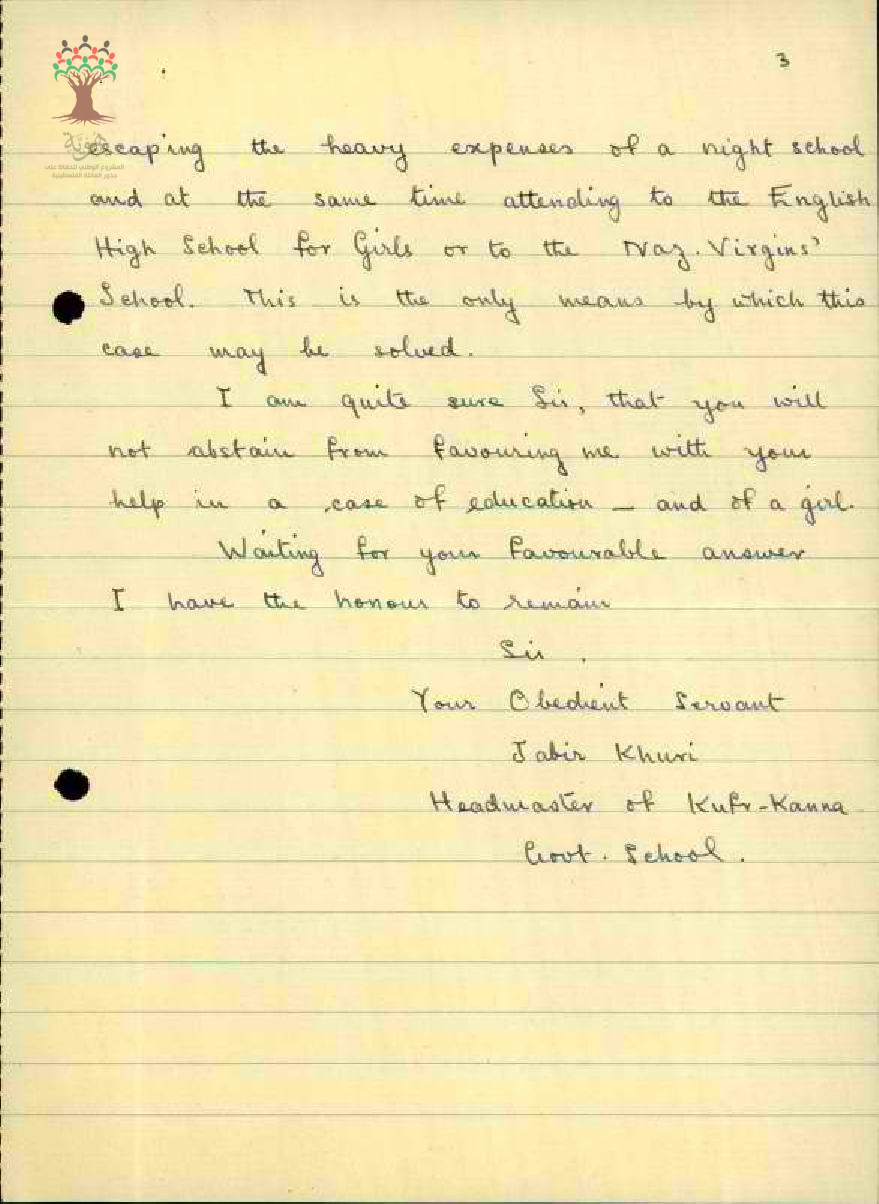 3
هوية
المشروع الوطني للحفاظ على
جذور العائلة الفلسطينية
escaping the heavy expenses of a night school
and at the same time attending to the English
High School for Girls or to the Naz. Virgins'
School. This is the only means by which this
case may be solved.
I am quite sure Sir, that you will
not abstain from favouring me with your
help in a case of education — and of a girl.
Waiting for your favourable answer
I have the honour to remain
Sir.
Your Obedient Servant
Jabir Khuri
Headmaster of Kufr-Kanna
Govt. School.